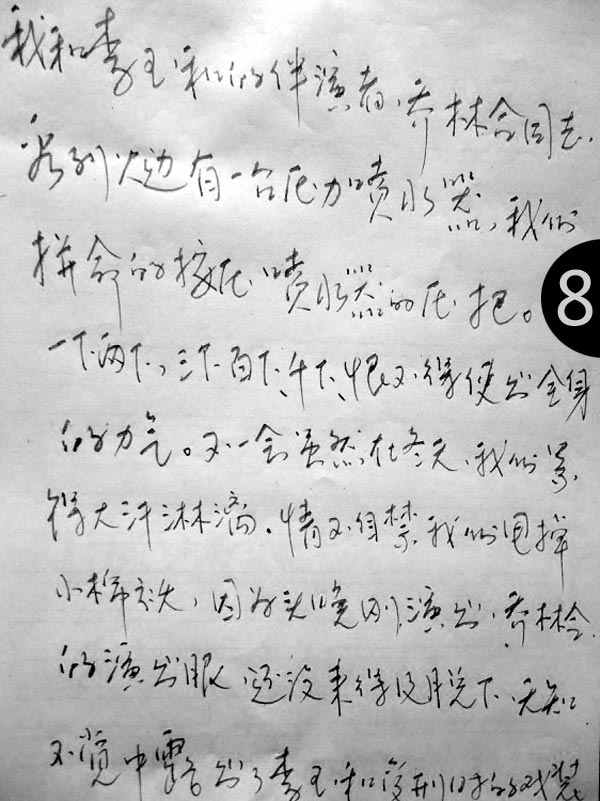 我和李玉和的伴演者，乔林合同志，
看到火边有一台压力喷水器，我们
拼命的按压喷水器的压把。
8
一下两下，三下百下、千下、恨不得使出全身
的力气。不一会虽然在冬天，我们累
得大汗淋漓。情不自禁，我们甩掉
小棉袄，因为头晚刚演出，乔林合
的演出服，还没来得及脱下，无知
不觉中露出了李玉和受刑时的戏装